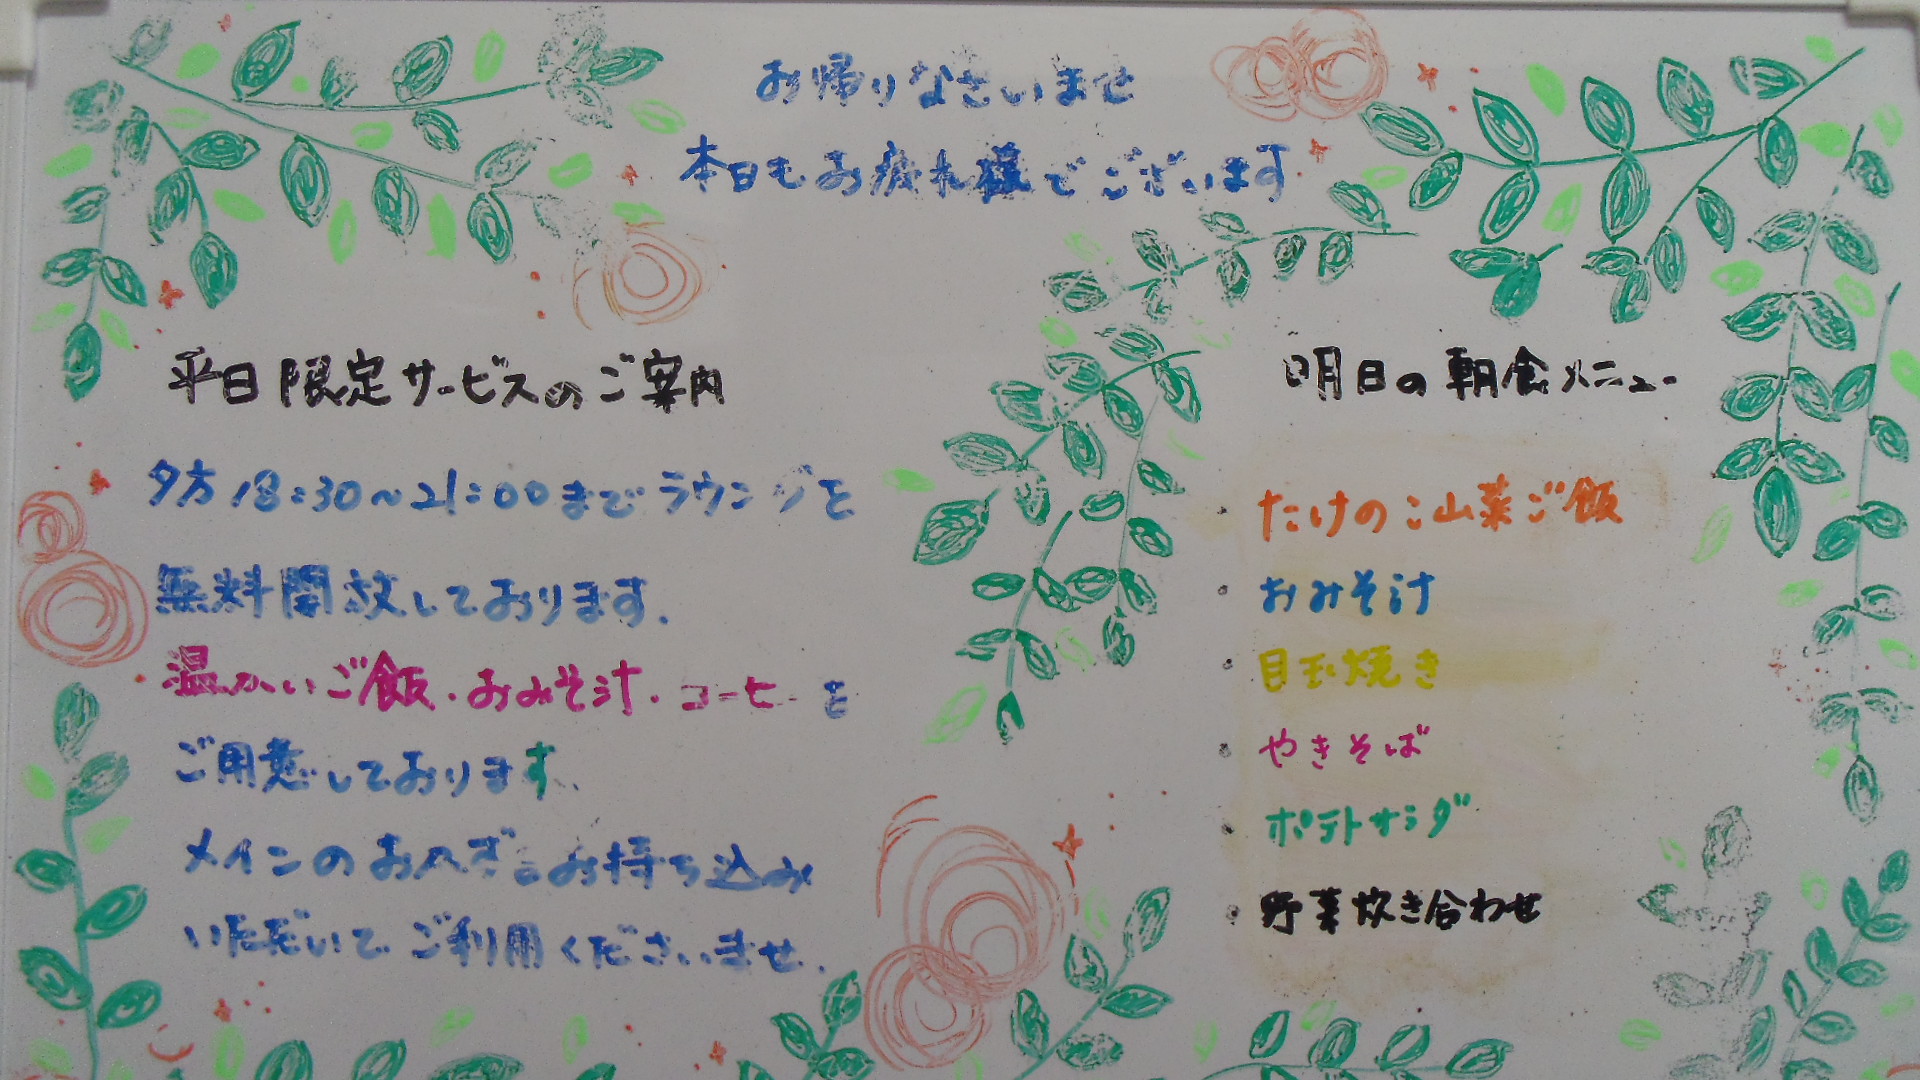 お帰りなさいませ
本日もお疲れ様でございます
平日限定サービスのご案内
夕方18:30〜21:00までラウンジを
無料開放しております.
温かいご飯・おみそ汁・コーヒーを
ご用意しております.
メインのおかずをお持ち込み
いただいてご利用くださいませ.
明日の朝食メニュー
・たけのこ山菜ご飯
・おみそ汁
・目玉焼き
・やきそば
・ポテトサラダ
・野菜炊き合わせ